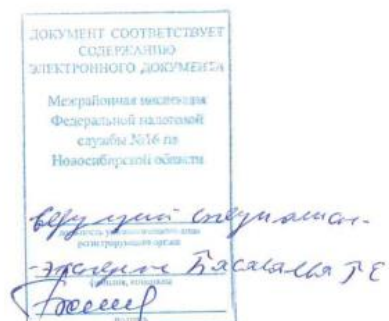 ДОКУМЕНТ СООТВЕТСТВУЕТ
СОДЕРЖАНИЮ
ЭЛЕКТРОННОГО ДОКУМЕНТА
Межрайонная инспекция
Федеральной налоговой
службы №16 по
Новосибирской области
ведущий специалист-
должность уполномоченного лица
регистрирующего органа
-эксперт
фамилия, инициалы
подпись